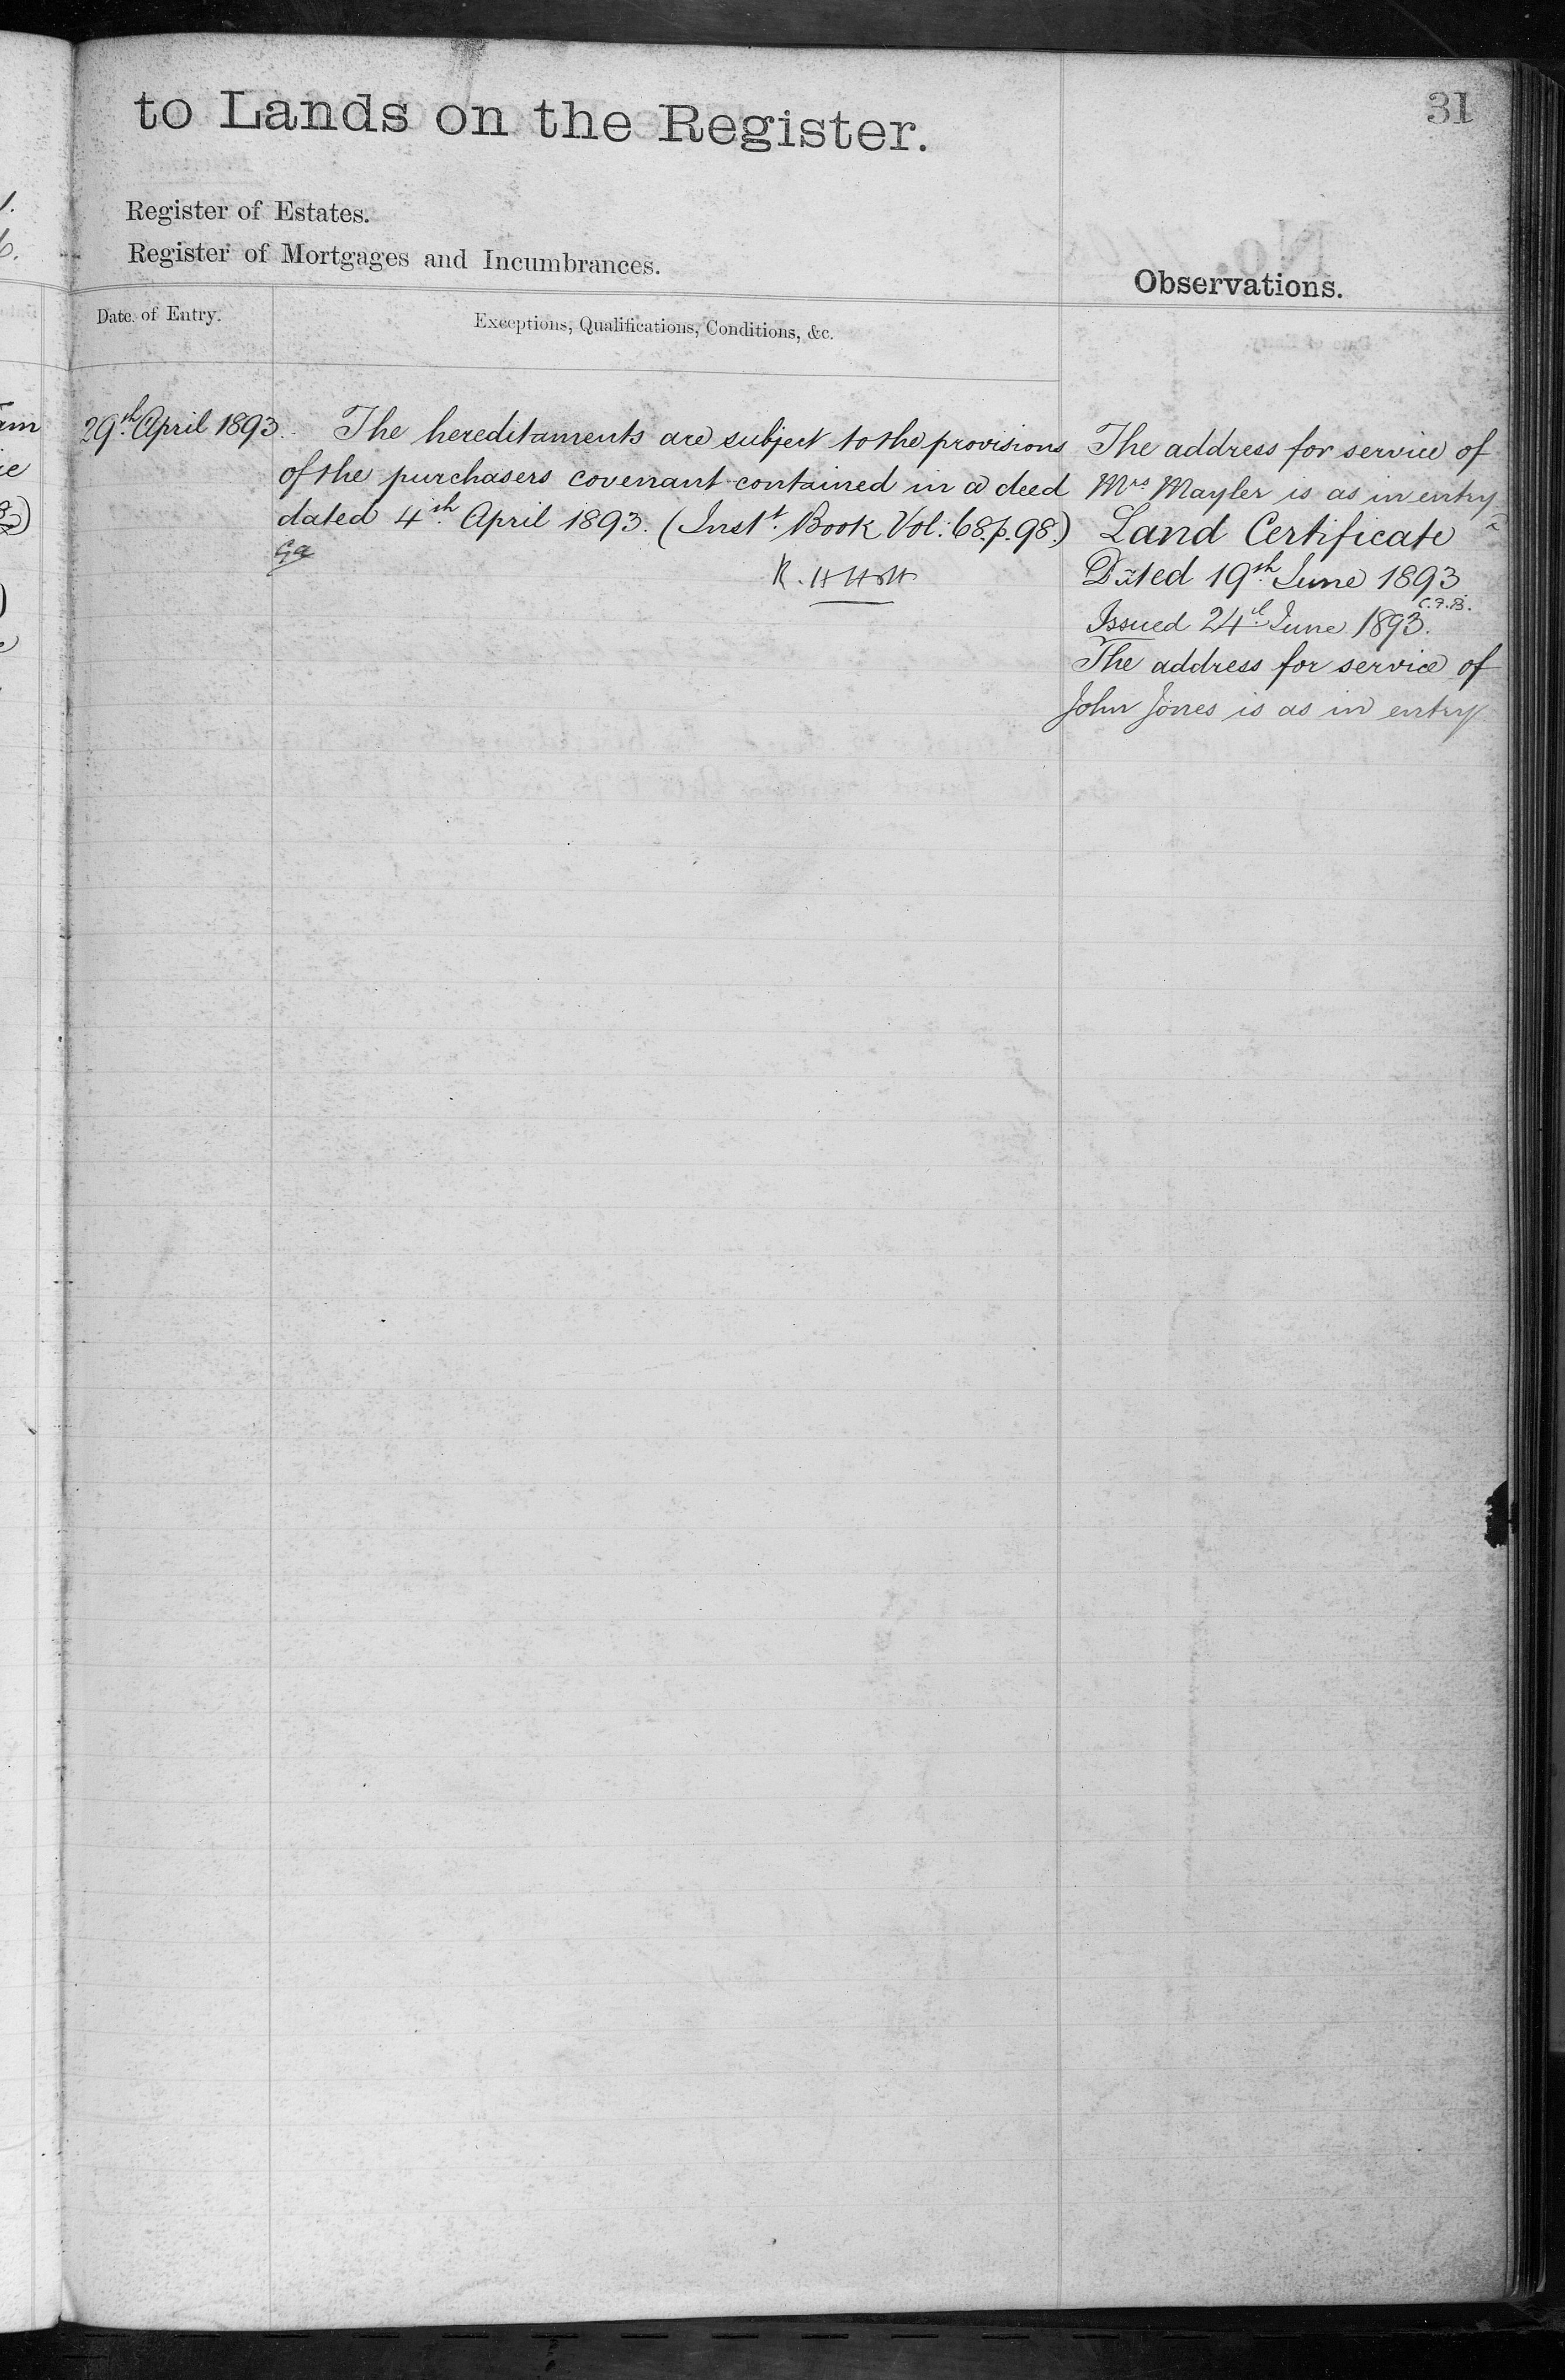 to Lands on the Register.
31
Register of Estates.
Register of Mortgages and Incumbrances.
Observations.
Date of Entry.
Exceptions, Qualifications, Conditions, &c.
29th April 1893.
The hereditaments are subject to the provisions
of the purchasers covenant contained in a deed
dated 4th April 1893. (Inst. Book Vol: 68. p. 98.)
The address for service of
Mrs Mayler is as in entry
Land Certificate
Dated 19th June 1893
C.F.B.
Issued 24th June 1893.
The address for service of
John Jones is as in entry